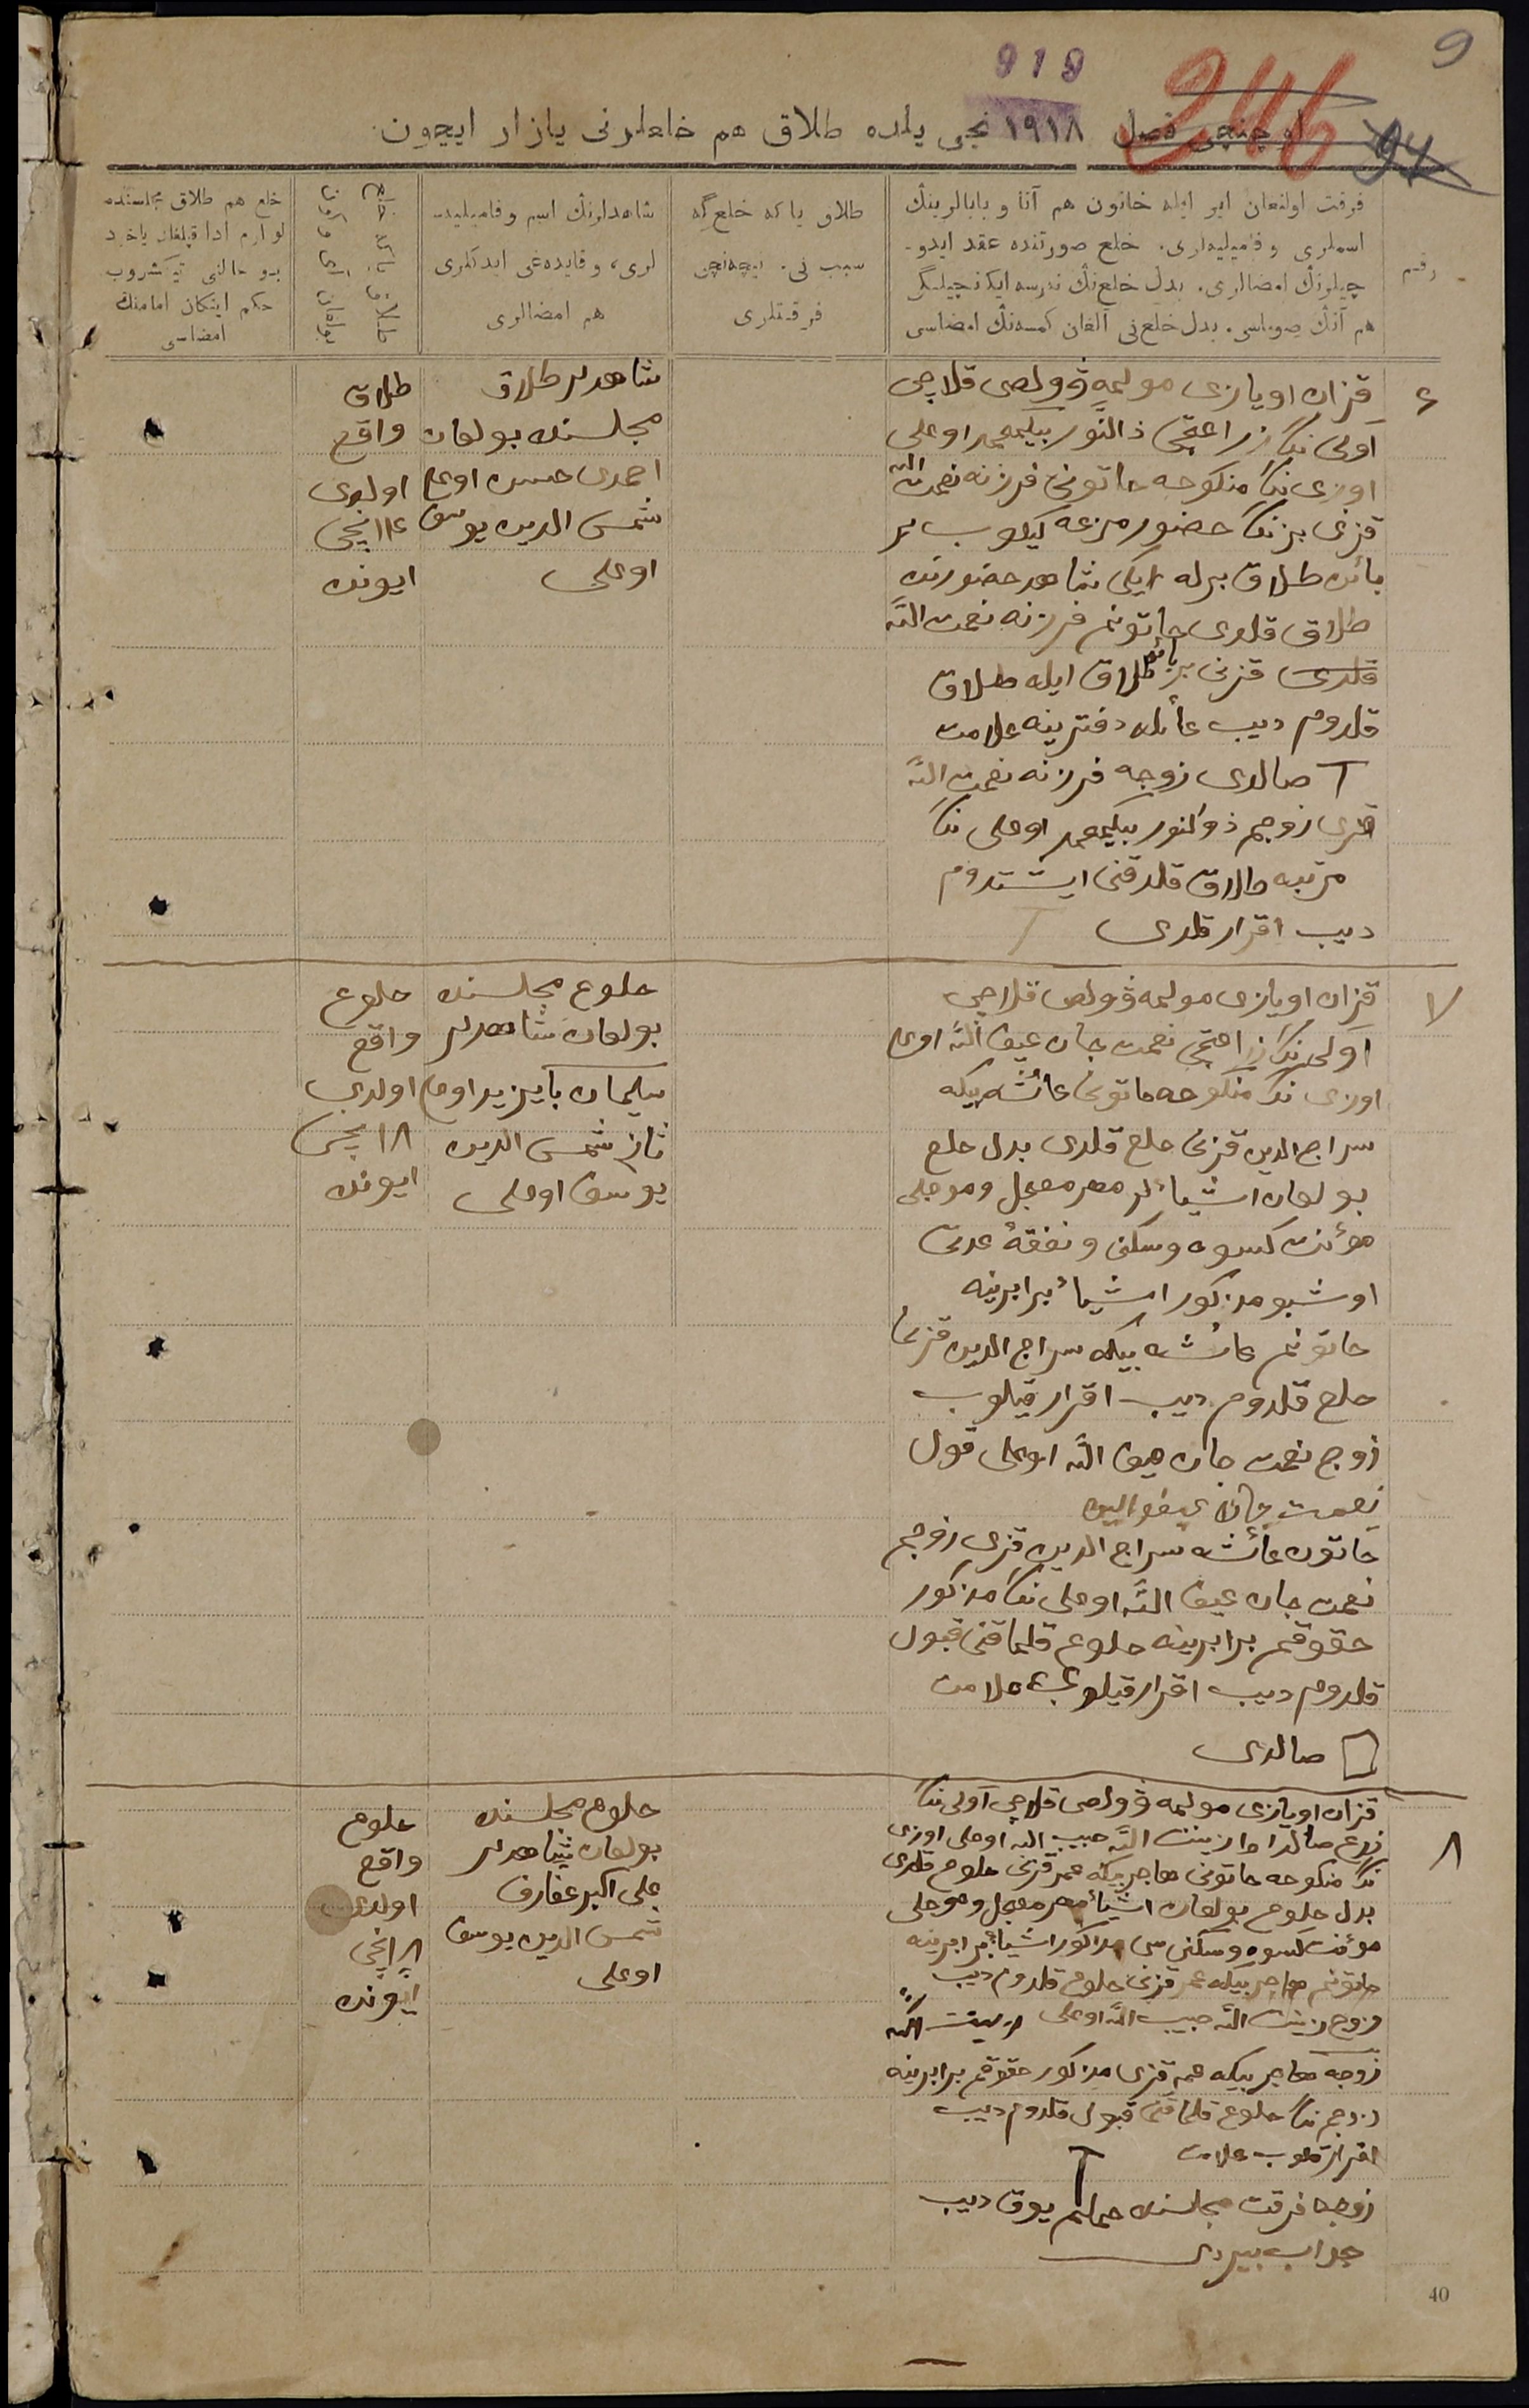 9
919
246
94
اوچنچی فصل ١٩١٨ نجی یلده طلاق هم خلعلرنی یازار ایچون
رقم
فرقت اولنغان ایر ایله خاتون هم آتا و بابالرینڭ
اسملری و فامیلیه‌لری. خلع صورتنده عقد ایدو-
چیلرنڭ امضالری. بدل خلع‌نڭ نه‌رسه ایکانچیلیگی
هم آنڭ صوماسی. بدل خلع‌نی آلغان کمسه‌نڭ امضاسی
طلاق یا که خلع گه
سبب نی. نیچه‌نچی
فرقتلری
شاهدلرنڭ اسم و فامیلیه-
لری، و فایده‌غی ایدکلری
هم امضالری
خلع هم طلاق مجلسنده
لوازم ادا قیلغان یاخود
بو حالنی تیکشروب
حکم ایتکان امامنڭ
امضاسی
٦
قزان اویازی مولمه وولصی قلاچی
آولی ننک زراعتچی ذالنور بیکمحمد اوغلی
اوزی ننک منکوحه خاتونی فرزنه نعمت الله
قزی بزننک حضورمزغه کیلوب بر
بائن طلاق برله ایکی شاهد حضورنده
طلاق قلدی خاتونم فرزنه نعمت الله
قلدی قزنی بر بائن طلاق ایله طلاق
قلدوم دیب عائله دفترینه علامت
T صالدی زوجه فرزنه نعمت الله
قزی زوجم ذوالنور بیکمحمد اوغلی ننک
مرتبه طلاق قلدقنی ایشتدوم
دیب اقرار قلدی T
شاهدلر طلاق
مجلسنده بولغان
احمدی حسن اوغلی
شمس الدین یوسف
اوغلی
طلاق
واقع
اولدی
١٤ نچی
ایونده
٧
قزان اویازی مولمه وولصی قلاچی
آولی ننک زراعتچی نعمت جان عیف الله اوغلی
اوزی ننک منکوحه خاتونی عائشه بیکه
سراج الدین قزنی خلع قلدی بدل خلع
بولغان اشیالر مهر معجل و موجلی
مؤنت کسوه و سکنی و نفقهٔ عدتی
اوشبو مذکور اشیا برابرینه
خاتونم عائشه بیکه سراج الدین قزنی
خلع قلدوم دیب اقرار قیلوب
زوج نعمت جان عیف الله اوغلی قول
نعمت جان
خاتون عائشه سراج الدین قزی زوجم
نعمت جان عیف الله اوغلی ننک مذکور
حقوقم برابرینه خلوع قلماقنی قبول
قلدوم دیب اقرار قیلوب علامت
صالدی
خلوع مجلسنده
بولغان شاهدلر
سلیمان بایزید اوغلی
ثانی شمس الدین
یوسف اوغلی
خلوع
واقع
اولدی
١٨ نچی
ایونده
٨
قزان اویازی مولمه وولصی قلاچی آولی ننک
زینت الله حبیب الله اوغلی اوزی
ننک منکوحه خاتونی هاجر بیکه عمر قزنی خلوع قلدی
بدل خلوع بولغان اشیا مهر معجل و موجلی
مؤنت کسوه و سکنی سی مذکور اشیا برابرینه
خاتونم هاجر بیکه عمر قزنی خلوع قلدوم دیب
زوج زینت الله حبیب الله اوغلی زینت الله
زوجه هاجر بیکه عمر قزی مذکور حقوقم برابرینه
زوجم ننک خلوع قلماقنی قبول قلدوم دیب
اقرار قلوب علامت T
زوجه فرقت مجلسنده حملم یوق دیب
جواب بیردی
خلوع مجلسنده
بولغان شاهدلر
علی اکبر غفارف
شمس الدین یوسف
اوغلی
خلوع
واقع
اولدی
١٨ نچی
ایونده
40